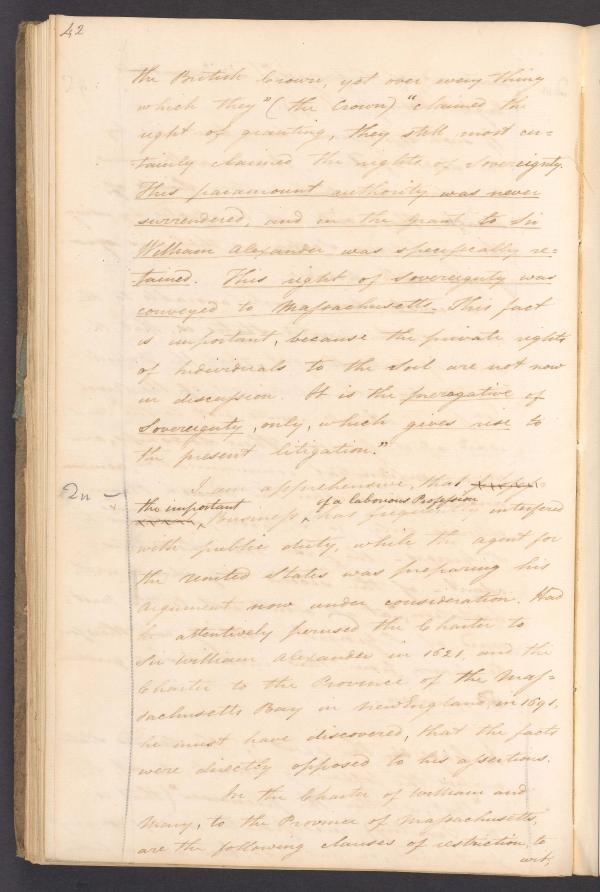 42
the British Crown, yet over every thing
which they" (the Crown) "claimed the
right of granting, they still most cer=
tainly claimed the rights of Sovereignty.
This paramount authority was never
surrendered, and in the grant to Sir
William Alexander was specifically re=
tained. This right of Sovereignty was
conveyed to Massachusetts. This fact
is important, because the private rights
of Individuals to the Soil are not now
in discussion. It is the prerogative of
Sovereignty, only, which gives rise to
the present litigation."
2n – I am apprehensive, that
the important of a laborious Profession
Business has frequently interfered
with public duty, while the agent for
the United States was preparing his
argument now under consideration. Had
he attentively perused the Charter to
Sir William Alexander in 1621, and the
Charter to the Province of the Mas=
sachusetts Bay in New England, in 1691,
he must have discovered, that the facts
were directly opposed to his assertions.
In the Charter of William and
Mary, to the Province of Massachusetts,
are the following clauses of restriction, to
wit,